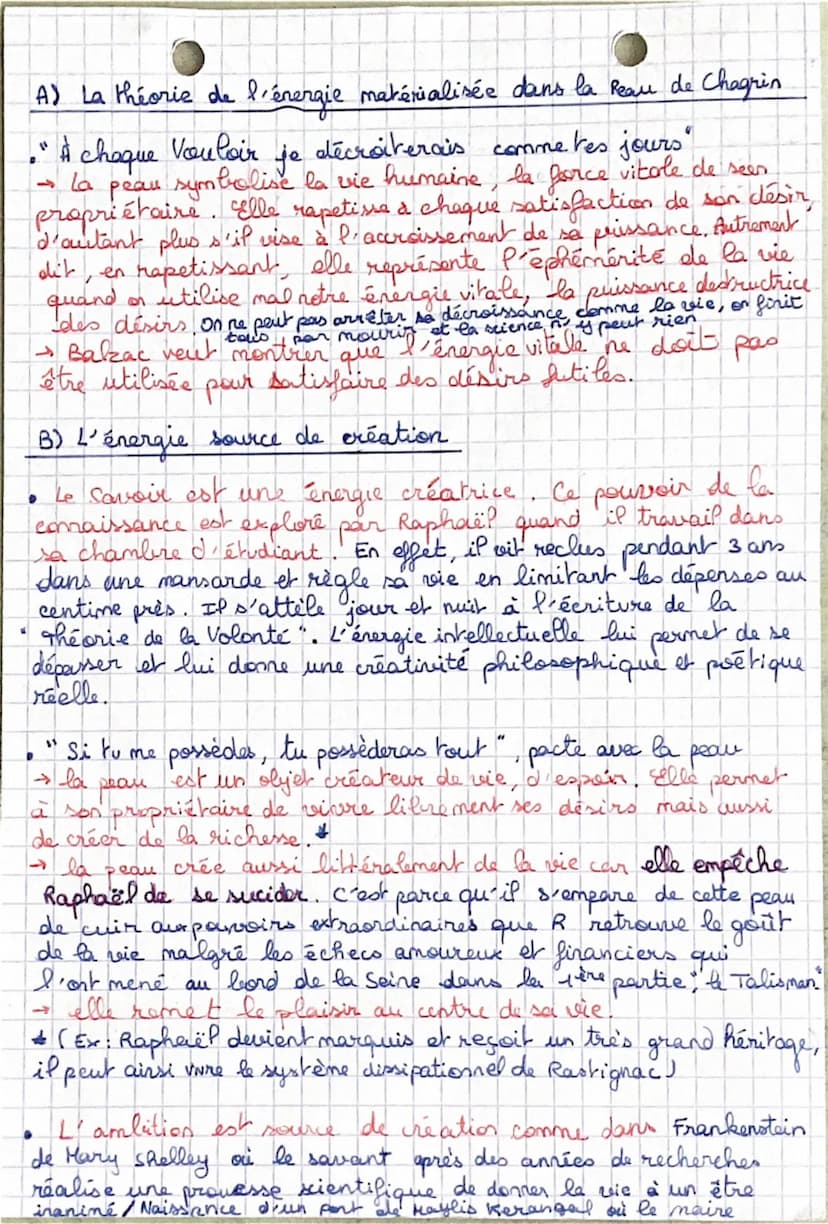 A) La théorie de l'énergie matérialisée dans la Peau de Chagrin
• "À chaque Vouloir je décroiterais comme tes jours"
→ La peau symbolise la vie humaine, la force vitale de seon
propriétaire. Elle rapetisse à chaque satisfaction de son désir,
d'autant plus s'il vise à l'accroissement de sa puissance. Autrement
dit, en rapetissant, elle représente l'éphémérité de la vie
quand on utilise mal notre énergie vitale, la puissance destructrice
des désirs. On ne peut pas arrêter sa décroissance, comme la vie, on finit
tous par mourir et la science n'y peut rien
→ Balzac veut montrer que l'énergie vitale ne doit pas
être utilisée pour satisfaire des désirs futiles.
B) L'énergie source de création
• Le Savoir est une énergie créatrice. Ce pouvoir de la
connaissance est exploré par Raphaël quand il travail dans
sa chambre d'étudiant. En effet, il vit reclus pendant 3 ans
dans une mansarde et règle sa vie en limitant les dépenses au
centime près. Il s'attèle jour et nuit à l'écriture de la
"Théorie de la Volonté". L'énergie intellectuelle lui permet de se
dépasser et lui donne une créativité philosophique et poétique
réelle.
• "Si tu me possèdes, tu possèderas tout", pacte avec la peau
→ la peau est un objet créateur de vie, d'espoir. Elle permet
à son propriétaire de vivre librement ses désirs mais aussi
de créer de la richesse. *
→ la peau crée aussi littéralement de la vie car elle empêche
Raphaël de se sucider. C'est parce qu'il s'empare de cette peau
de cuir aux pouvoirs extraordinaires que R retrouve le goût
de la vie malgré les échecs amoureux et financiers qui
l'ont mené au bord de la Seine dans la 1ère partie, "le Talisman"
→ elle remet le plaisir au centre de sa vie.
* (Ex: Raphaël devient marquis et reçoit un très grand héritage,
il peut ainsi vivre le système dissipationnel de Rastignac)
• L'ambition est source de création comme dans Frankenstein
de Mary Shelley où le savant après des années de recherches
réalise une prouesse scientifique de donner la vie à un être
inanimé / Naissance d'un pont de Maylis Kerangal où le maire